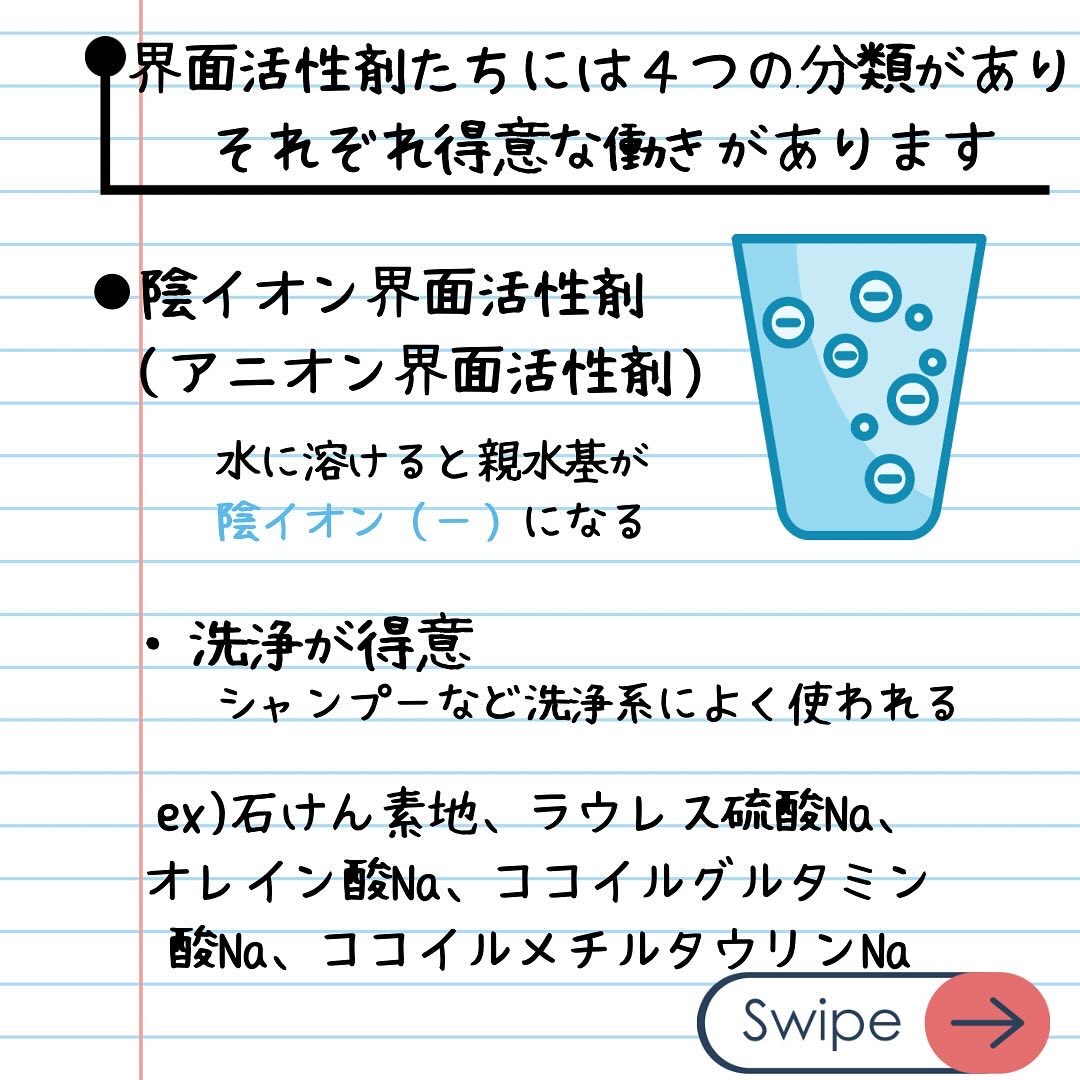 ●界面活性剤たちには4つの分類があり
それぞれ得意な働きがあります
●陰イオン界面活性剤
(アニオン界面活性剤)
水に溶けると親水基が
陰イオン(ー)になる
・洗浄が得意
シャンプーなど洗浄系によく使われる
ex)石けん素地、ラウレス硫酸Na、
オレイン酸Na、ココイルグルタミン
酸Na、ココイルメチルタウリンNa
Swipe